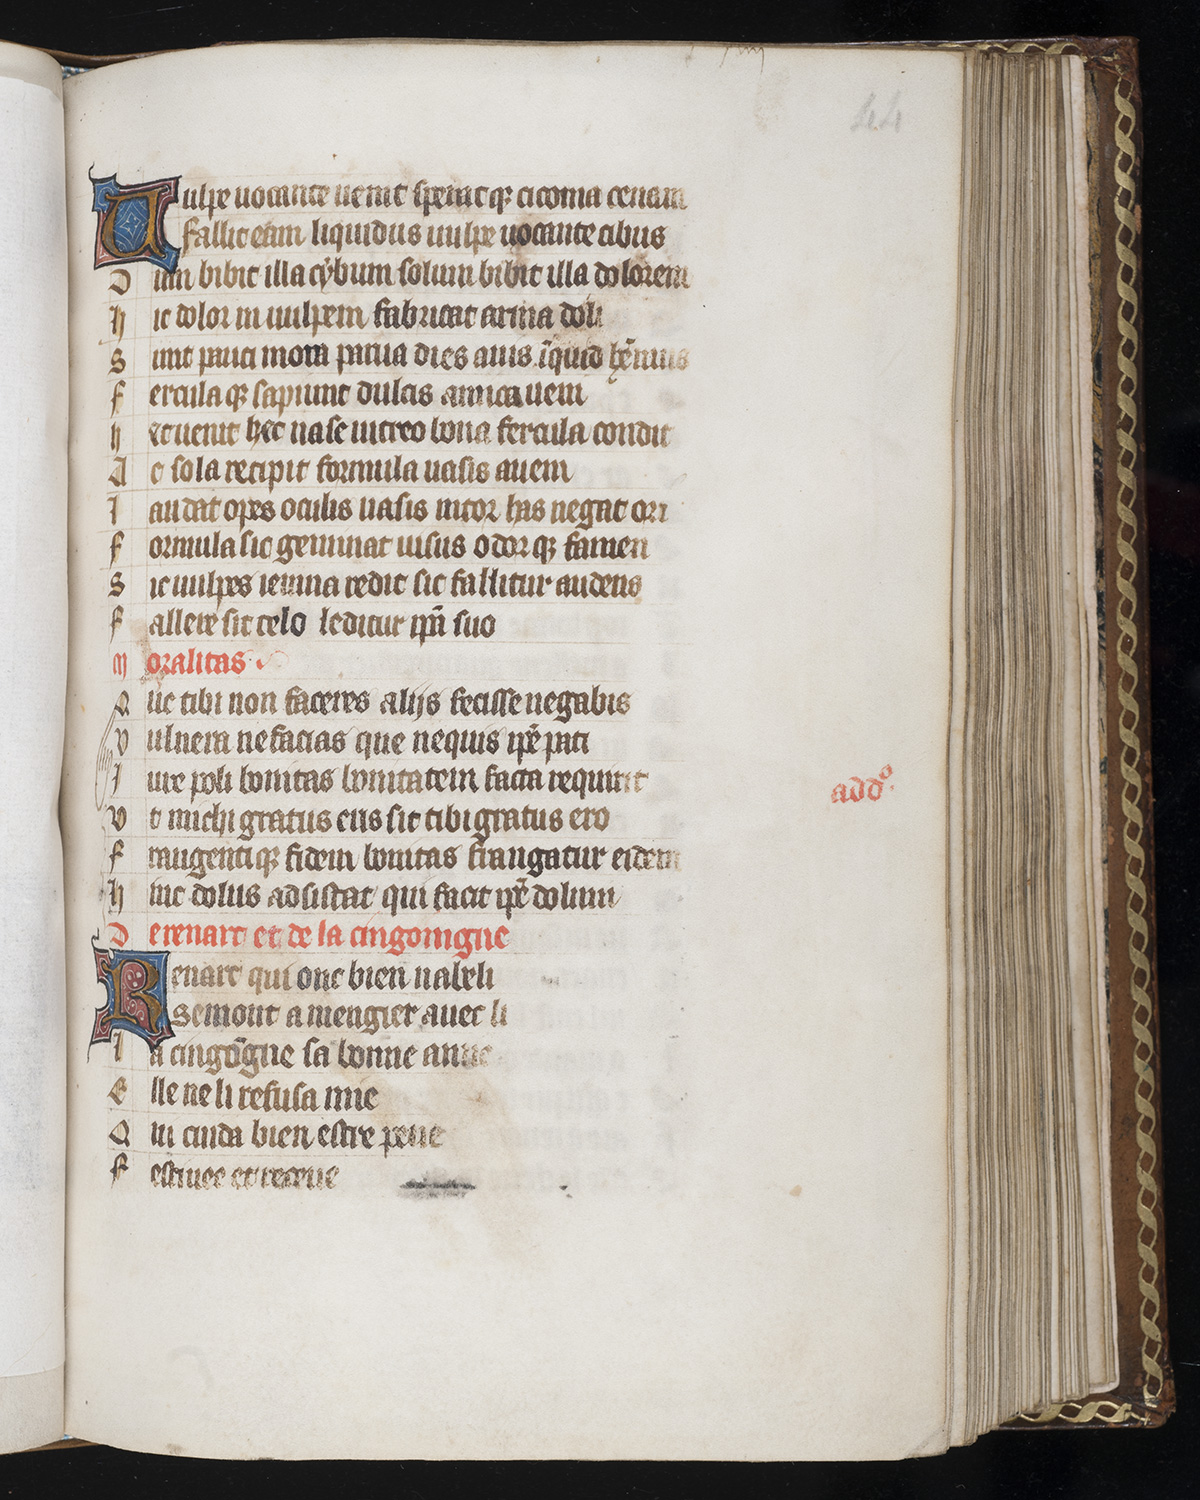 44
Vulpe uocante uenit speratq3 ciconia cenam
fallit eam liquidus uulpe uocante cibus
Dum bibit illa cybum solum bibit illa dolorem
hic dolor in uulpem fabricat arma doli
Sunt pauci mota patua dies auis
fercula q3 sapiunt dulcis amica ueni
hec uenit hec uase uitreo bona fercula condit
Ac sola recipit formula uasis auem
laudat opes oculis uasis nitor has negat ori
formula sic geminat uisus odor q3 famen
Sic uulpes ieiuna redit sic fallitur audens
fallere sic telo leditur ip̄a suo
moralitas
Que tibi non faceres alijs fecisse negabis
vulnera ne facias que nequis ip̄e pati
Iure poli bonitas bonitatem facta requirit
vt michi gratus eris sic tibi gratus ero
frangenti q3 fidem bonitas frangatur eidem
hinc dolus adsistat qui facit ip̄e dolum
addo.
De renart et de la cingoingne
Renart qui onc bien nabeli
Semont a mengier auec li
la cingōgne sa bonne amie
Elle ne li refusa mie
Qui cuida bien estre peue
festiuee et receue